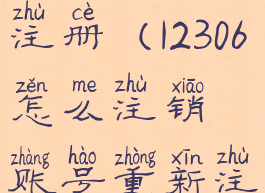 zhù cè
注册 (12306
zěn me zhù xiāo
怎么注销
zhàng hào zhòng xīn zhù
账号重新注